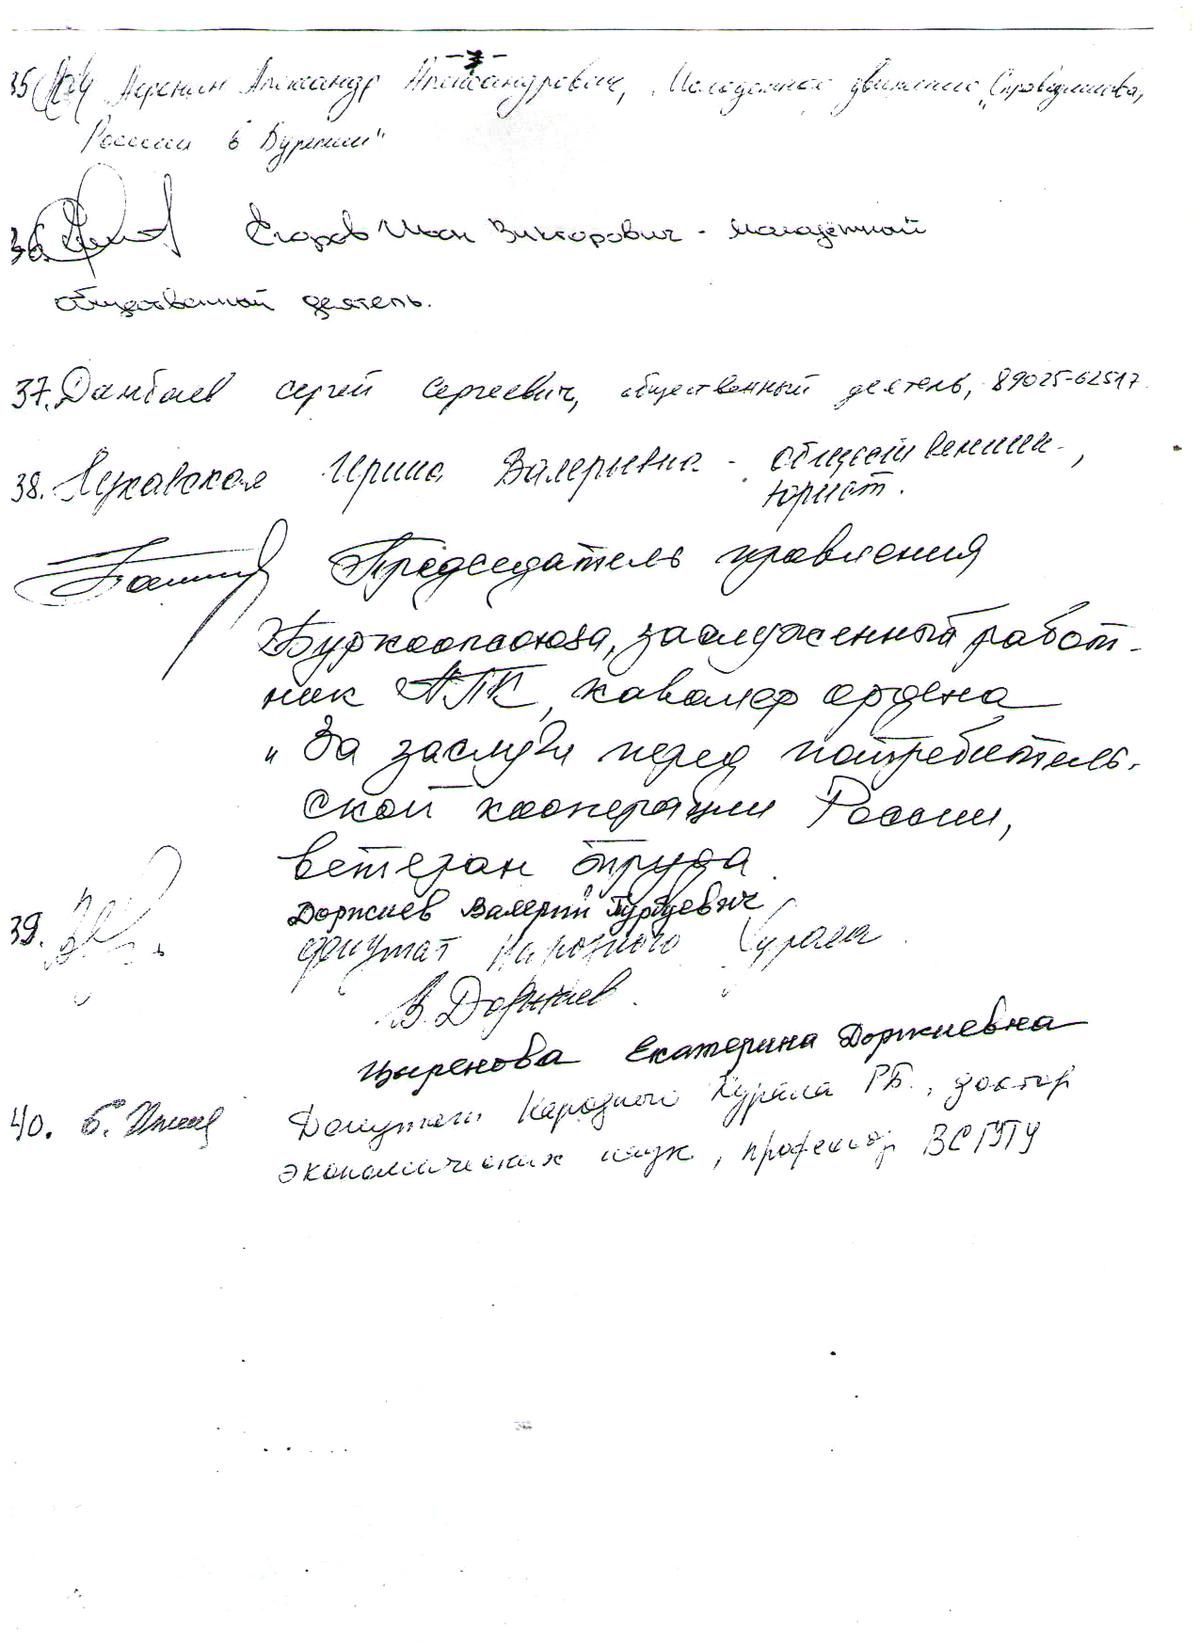 - 7 -
35. Александр Александрович, Молодежное движение „Справедливова,
России в Бурятии"
36. Егоров Иван Викторович - молодёжный
общественный деятель.
37. Дамбаев Сергей Сергеевич, общественный деятель, 89025-62517
38. Лукавская Ирина Валерьевна - общественник,
юрист.
Председатель правления
Буркоопсоюза, заслуженный работ-
ник АПК, кавалер ордена
„За заслуги перед потребитель-
ской кооперации России,
ветеран труда
Доржиев Валерий
39. депутат Народного Хурала
В. Доржиев
Цыренова Екатерина Доржиевна
40. Депутат Народного Хурала РБ., доктор
экономических наук, профессор ВСГУТУ